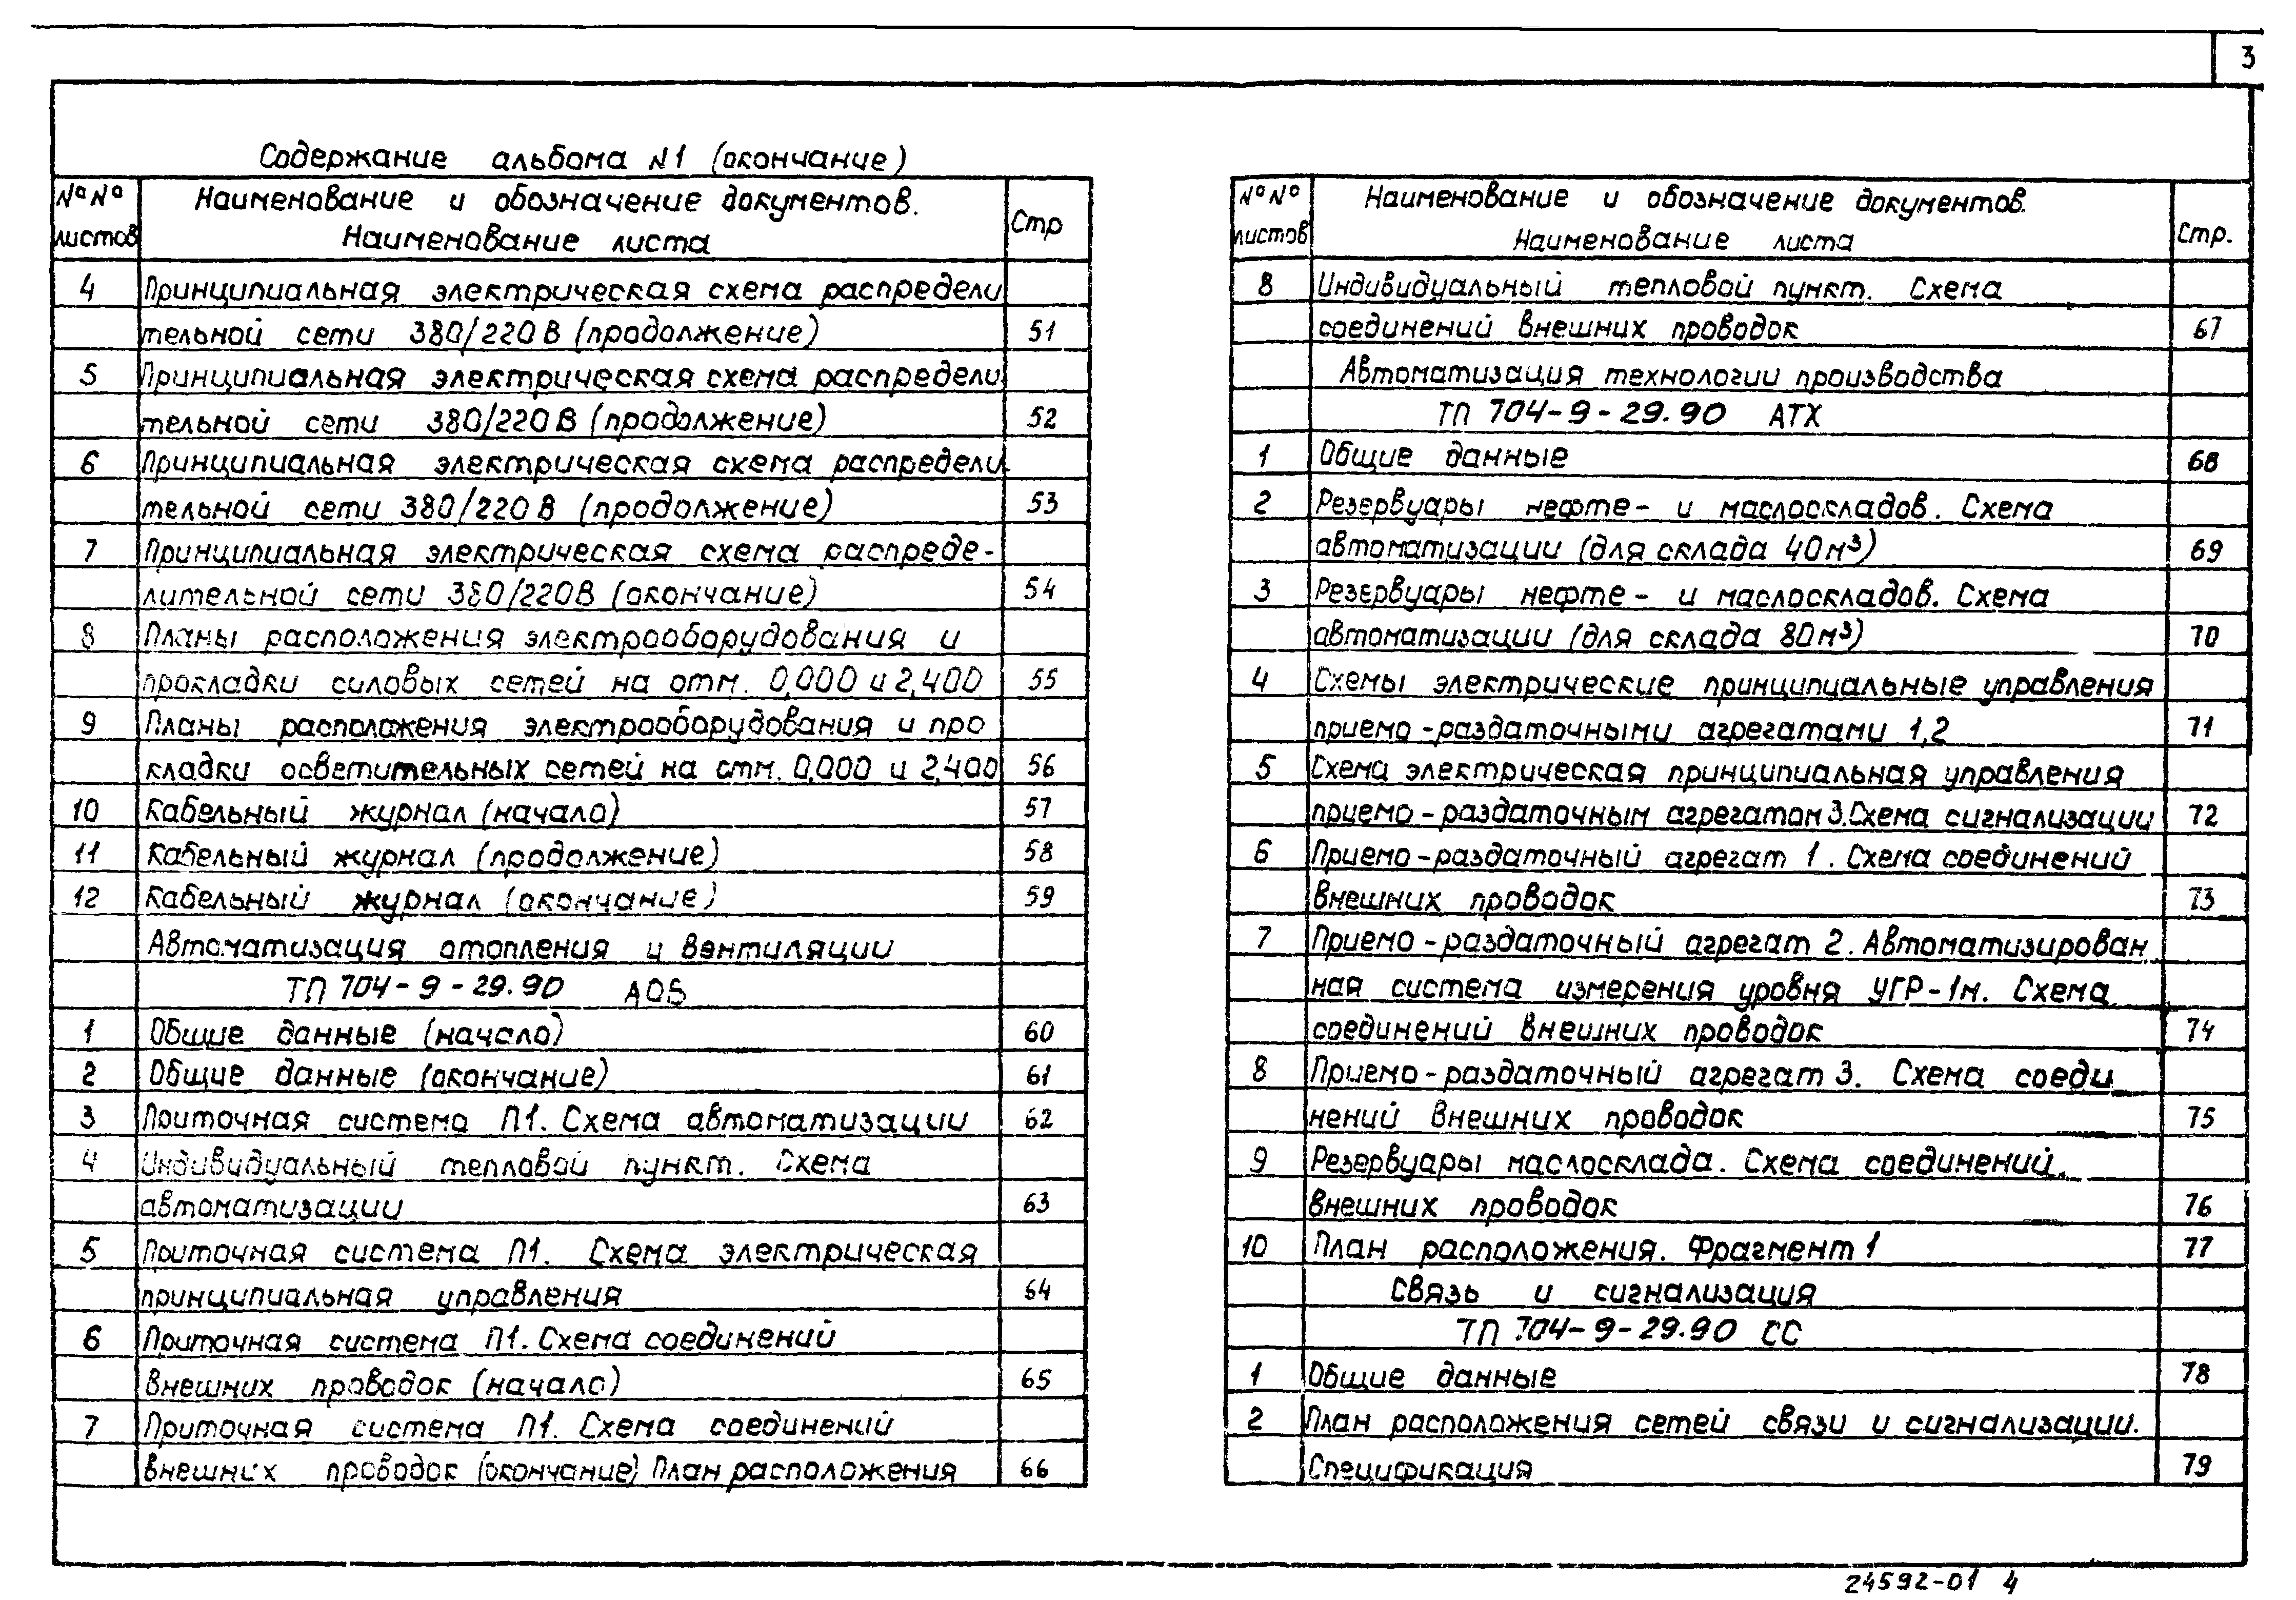 3
Содержание альбома №1 (окончание)
№№ листов
Наименование и обозначение документов.
Наименование листа
Стр
4 Принципиальная электрическая схема распредели
тельной сети 380/220В (продолжение) 51
5 Принципиальная электрическая схема распредели
тельной сети 380/220В (продолжение) 52
6 Принципиальная электрическая схема распредели
тельной сети 380/220В (продолжение) 53
7 Принципиальная электрическая схема распреде-
лительной сети 380/220В (окончание) 54
8 Планы расположения электрооборудования и
прокладки силовых сетей на отм. 0,000 и 2,400 55
9 Планы расположения электрооборудования и про
кладки осветительных сетей на отм. 0,000 и 2,400 56
10 Кабельный журнал (начало) 57
11 Кабельный журнал (продолжение) 58
12 Кабельный журнал (окончание) 59
Автоматизация отопления и вентиляции
ТП 704-9-29.90 АОВ
1 Общие данные (начало) 60
2 Общие данные (окончание) 61
3 Приточная система П1. Схема автоматизации 62
4 Индивидуальный тепловой пункт. Схема
автоматизации 63
5 Приточная система П1. Схема электрическая
принципиальная управления 64
6 Приточная система П1. Схема соединений
внешних проводок (начало) 65
7 Приточная система П1. Схема соединений
внешних проводок (окончание) План расположения 66
№№ листов
Наименование и обозначение документов.
Наименование листа
Стр.
8 Индивидуальный тепловой пункт. Схема
соединений внешних проводок 67
Автоматизация технологии производства
ТП 704-9-29.90 АТХ
1 Общие данные 68
2 Резервуары нефте- и маслоскладов. Схема
автоматизации (для склада 40м³) 69
3 Резервуары нефте- и маслоскладов. Схема
автоматизации (для склада 80м³) 70
4 Схемы электрические принципиальные управления
приемо-раздаточными агрегатами 1,2 71
5 Схема электрическая принципиальная управления
приемо-раздаточным агрегатом 3. Схема сигнализации 72
6 Приемо-раздаточный агрегат 1. Схема соединений
внешних проводок 73
7 Приемо-раздаточный агрегат 2. Автоматизирован
ная система измерения уровня УГР-1м. Схема
соединений внешних проводок 74
8 Приемо-раздаточный агрегат 3. Схема соеди
нений внешних проводок 75
9 Резервуары маслосклада. Схема соединений
внешних проводок 76
10 План расположения. Фрагмент 1 77
Связь и сигнализация
ТП 704-9-29.90 СС
1 Общие данные 78
2 План расположения сетей связи и сигнализации.
Спецификация 79
24592-01 4